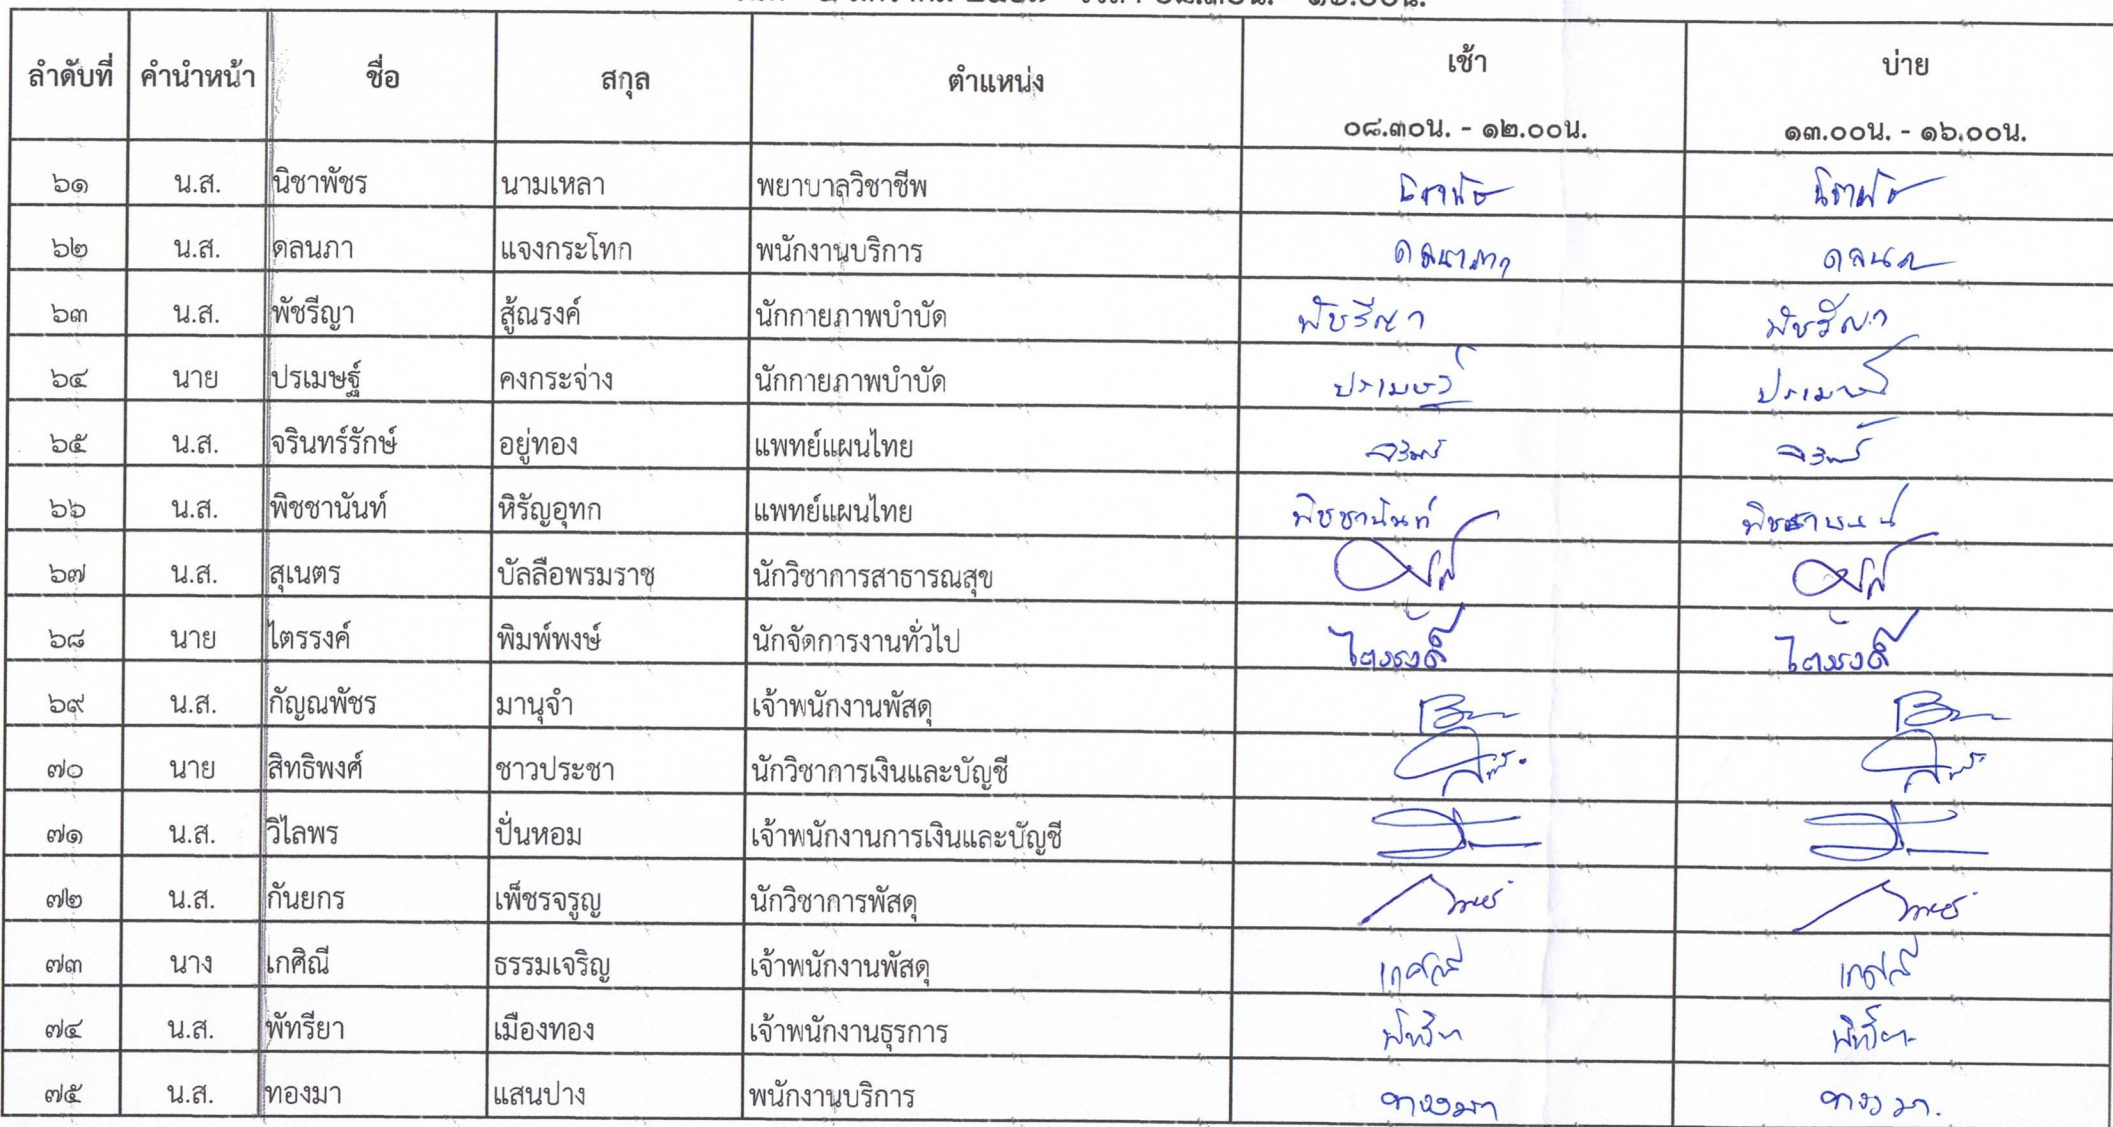 ลำดับที่ คำนำหน้า ชื่อ สกุล ตำแหน่ง เช้า บ่าย
๐๘.๓๐น. - ๑๒.๐๐น. ๑๓.๐๐น. - ๑๖.๐๐น.
๖๑ น.ส. นิชาพัชร นามเหลา พยาบาลวิชาชีพ
๖๒ น.ส. ดลนภา แจงกระโทก พนักงานบริการ ดลนภา ดลนภ
๖๓ น.ส. พัชรีญา สู้ณรงค์ นักกายภาพบำบัด พัชรีญา พัชรีญา
๖๔ นาย ปรเมษฐ์ คงกระจ่าง นักกายภาพบำบัด ปรเมษฐ์ ปรเมษฐ์
๖๕ น.ส. จรินทร์รักษ์ อยู่ทอง แพทย์แผนไทย
๖๖ น.ส. พิชชานันท์ หิรัญอุทก แพทย์แผนไทย พิชชานันท์ พิชชานันท์
๖๗ น.ส. สุเนตร บัลลือพรมราช นักวิชาการสาธารณสุข
๖๘ นาย ไตรรงค์ พิมพ์พงษ์ นักจัดการงานทั่วไป ไตรรงค์ ไตรรงค์
๖๙ น.ส. กัญณพัชร มานุจำ เจ้าพนักงานพัสดุ
๗๐ นาย สิทธิพงศ์ ชาวประชา นักวิชาการเงินและบัญชี
๗๑ น.ส. วิไลพร ปิ่นหอม เจ้าพนักงานการเงินและบัญชี
๗๒ น.ส. กันยกร เพ็ชรจรูญ นักวิชาการพัสดุ
๗๓ นาง เกศิณี ธรรมเจริญ เจ้าพนักงานพัสดุ เกศิณี เกศิณี
๗๔ น.ส. พัทรียา เมืองทอง เจ้าพนักงานธุรการ พัทรียา พัทรียา
๗๕ น.ส. ทองมา แสนปาง พนักงานบริการ ทองมา ทองมา.